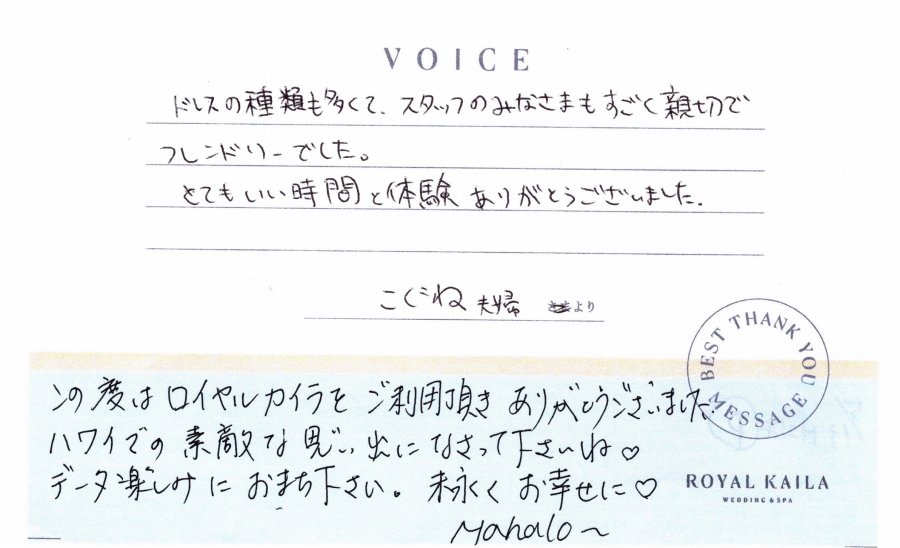 VOICE
ドレスの種類も多くて、スタッフのみなさまもすごく親切で
フレンドリーでした。
とてもいい時間と体験ありがとうございました。
こぐれ夫婦 より
BEST THANK YOU MESSAGE
この度はロイヤルカイラをご利用頂きありがとうございました。
ハワイでの素敵な思い出になさって下さいね♡
データ楽しみにおまち下さい。末永くお幸せに♡
Mahalo〜
ROYAL KAILA
WEDDING & SPA